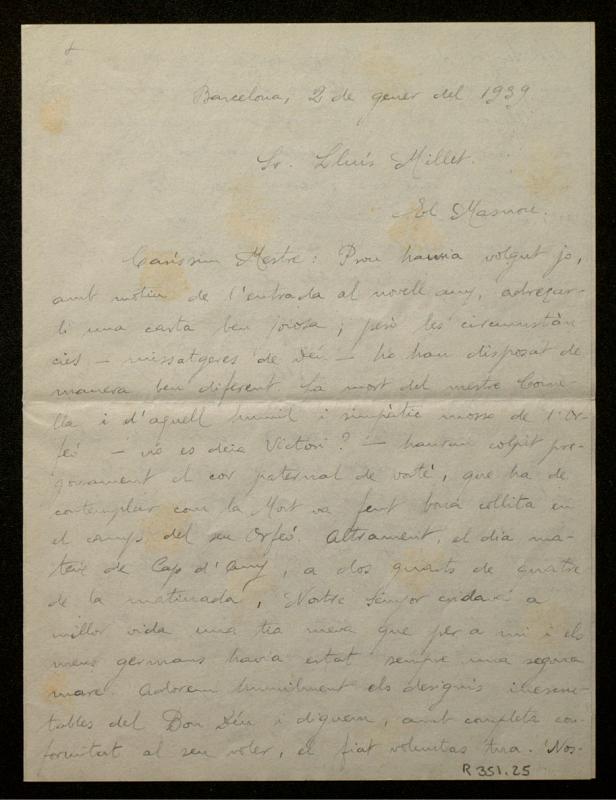 Barcelona, 2 de gener del 1939
Sr. Lluís Millet.
El Masnou.
Caríssim Mestre: Prou hauria volgut jo,
amb motiu de l'entrada al novell any, adreçar-
li una carta ben joiosa; però les circumstàn
cies — missatgeres de Déu — ho han disposat de
manera ben diferent. La mort del mestre Come-
lla i d'aquell humil i simpàtic mosso de l'Or-
feó — no es deia Victori? — hauran colpit pre-
gonament el cor paternal de vostè, que ha de
contemplar com la Mort va fent bona collita en
el camp del seu Orfeó. Altrament, el dia ma-
teix de Cap d'Any, a dos quarts de quatre
de la matinada, Nostre Senyor cridava a
millor vida una tia meva que per a mi i els
meus germans havia estat sempre una segona
mare. Adorem humilment els designis inescru-
tables del Bon Déu i diguem, amb completa con-
formitat al seu voler, el fiat voluntas tua. Nos-
R 351.25